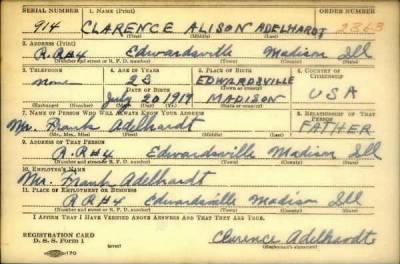 SERIAL NUMBER 1. NAME (Print) ORDER NUMBER
914 CLARENCE ALISON ADELHARDT 2363
(First) (Middle) (Last)
2. ADDRESS (Print)
R.R.#4 Edwardsville Madison Ill
(Number and street or R. F. D. number) (Town) (County) (State)
3. TELEPHONE 4. AGE IN YEARS 5. PLACE OF BIRTH 6. COUNTRY OF CITIZENSHIP
none 23 EDWARDSVILLE
DATE OF BIRTH (Town or county) USA
July 20 1917 MADISON
(Exchange) (Number) (Mo.) (Day) (Yr.) (State or country)
7. NAME OF PERSON WHO WILL ALWAYS KNOW YOUR ADDRESS 8. RELATIONSHIP OF THAT PERSON
Mr. Frank Adelhardt FATHER
(Mr., Mrs., Miss) (First) (Middle) (Last)
9. ADDRESS OF THAT PERSON
R.R#4 Edwardsville Madison Ill
(Number and street or R. F. D. number) (Town) (County) (State)
10. EMPLOYER'S NAME
Mr. Frank Adelhardt
11. PLACE OF EMPLOYMENT OR BUSINESS
R.R#4 Edwardsville Madison Ill
(Number and street or R. F. D. number) (Town) (County) (State)
I AFFIRM THAT I HAVE VERIFIED ABOVE ANSWERS AND THAT THEY ARE TRUE.
REGISTRATION CARD
D. S. S. Form 1 Clarence Adelhardt
(Registrant's signature)